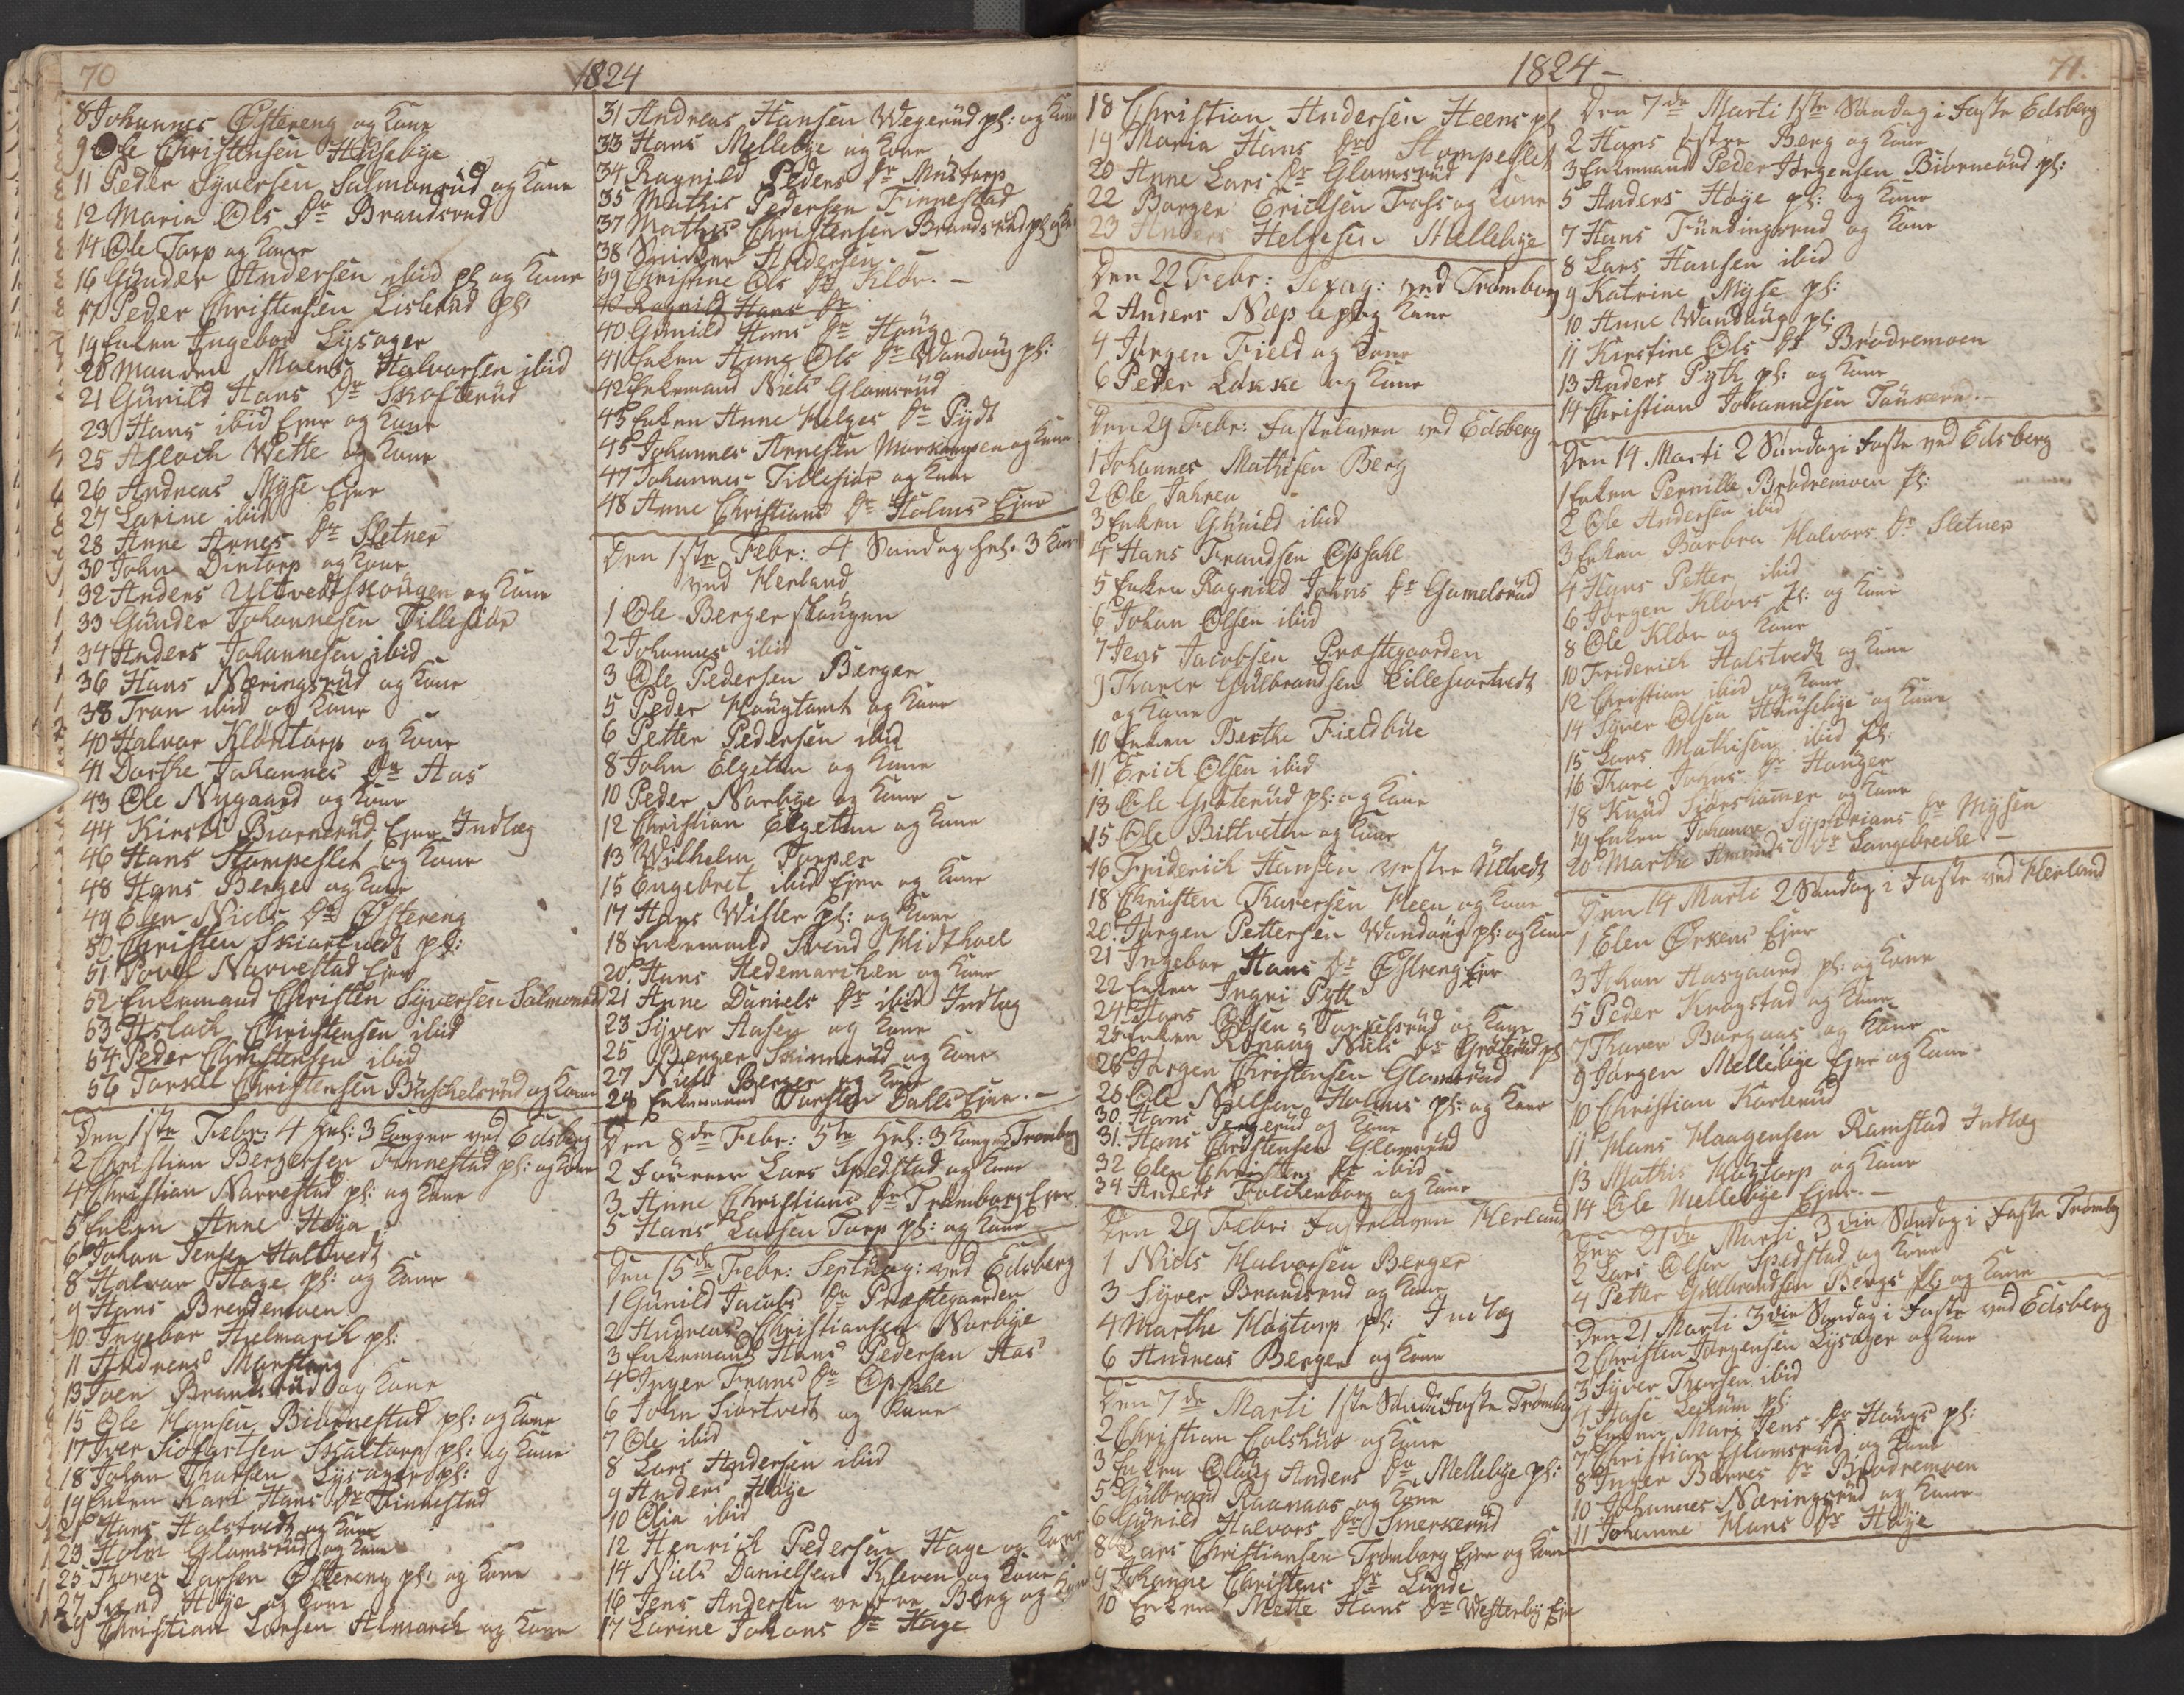 70
1824
8 Johannes Østereng og Kone
9 Ole Christensen Huusebye
11 Peder Syversen Salmonrud og Kone
12 Maria Ols Dr Brandsrud
14 Ole Torp og Kone
16 Gunder Andersen ibid pl: og Kone
17 Peder Christensen Lislerud pl:
19 Enken Ingebor Lysager
20 Manden Moens Halvorsen ibid
21 Gunild Hans Dr Skofterud
23 Hans ibid Ejer og Kone
25 Asloch Wette og Kone
26 Andreas Myse Ejer
27 Larine ibid
28 Anne Arnes Dr Sletner
30 John Dintorp og Kone
32 Anders Ultvedtskougen og Kone
33 Gunder Johannesen Tillesiør
34 Anders Johannesen ibid
36 Hans Næringsrud og Kone
38 Tron ibid og Kone
40 Halvor Kløntorp og Kone
41 Dorthe Johannes Dr Aas
43 Ole Nygaard og Kone
44 Kirsti Biørnerud Ejer Indlæg
46 Hans Stompeslet og Kone
48 Hans Berger og Kone
49 Elen Niels Dr Østereng
50 Christen Skiortvedt pl:
51 Povel Narvestad Ejer
52 Enkemand Christen Syversen Salmonrud
53 Aslach Christensen ibid
54 Peder Christensen ibid
56 Torkel Christensen Buschelsrud og Kone
Den 1ste Febr: 4 Hel: 3 Konger ved Edsberg
2 Christian Bergersen Finnestad pl: og Kone
4 Christian Narvestad pl: og Kone
5 Enken Anne Høya
6 Johan Jensen Haltvedt
8 Halvor Hage pl: og Kone
9 Hans Bredemoen
10 Ingebor Hielmarch pl:
11 Andreas Mansteng
13 Joen Brandsrud og Kone
15 Ole Hansen Biørnestad pl: og Kone
17 Iver Siofartsen Skaltorp pl: og Kone
18 Johan Thorsen Lysager pl:
19 Enken Kari Hans Dr Finnestad
21 Hans Halstvedt og Kone
23 Holm Glamsrud og Kone
25 Thorer Larsen Østereng pl: og Kone
27 Svend Høje og Kone
29 Christian Larsen Almarch og Kone
31 Andreas Hansen Wegerud pl: og Kone
33 Hans Mellebye og Kone
34 Ragnild Peders Dr Mustorp
35 Mathis Pedersen Finnestad
37 Mathis Christensen Brandsrud pl: og Kone
38 Snidker Andersen
39 Christine Ols Dr Klør. -
40 Ragnild Hans Dr
40 Gunild Hans Dr Haug
41 Enken Anne Ols Dr Wandong pl:
42 Enkemand Niels Glamsrud
43 Enken Anne Helges Dr Pydt
45 Johannes Arnesen Morskougen og Kone
47 Johannes Tillesiør og Kone
48 Anne Christians Dr Holms Ejer
Den 1ste Febr: 4 Søndag Hel. 3 Kon
ved Herland
1 Ole Berger skougen
2 Johannes ibid
3 Ole Pedersen Berger
5 Peder Hougtomt og Kone
6 Petter Pedersen ibid
8 John Elgeten og Kone
10 Peder Norbye og Kone
12 Christian Elgeten og Kone
13 Wilhelm Torper
15 Engebret ibid Ejer og Kone
17 Hans Wister pl: og Kone
18 Enkemand Svend Midthoel
20 Hans Hedemarchen og Kone
21 Anne Daniels Dr ibid Indlæg
23 Syver Aasen og Kone
25 Berger Skinnerud og Kone
27 Niels Berger og Kone
28 Enkemand Torsten Dahls Ejer. -
Den 8de Febr: 5te Hel: 3 Konger Tromborg
2 Foerer Lars Spedstad og Kone
3 Anne Christians Dr Tromborg Ejer
5 Hans Larsen Torp pl: og Kone
Den 15de Febr: Septuag: ved Edsberg
1 Gunild Jacobs Dr Præstegaarden
2 Andreas Christiansen Norbye
3 Enkemand Hans Pedersen Aas
4 Inger Frans Dr Opsahl
6 John Siortvedt og Kone
7 Ole ibid
8 Lars Andersen ibid
9 Anders Høye
10 Olia ibid
12 Henrich Pedersen Hage og Kone
14 Niels Danielsen Kleven og Kone
16 Jens Andersen vestre Berg og Kone
17 Larine Johans Dr Hage
1824 -
71.
18 Christian Andersen Heens pl
19 Maria Hans Dr Stompeslet
20 Anne Lars Dr Glamsrud
22 Borger Ericksen Foss og Kone
23 Anders Helgesen Mellebye
Den 22 Febr: Sexag: ved Tromborg
2 Anders Næpleplog Kone
4 Jørgen Field og Kone
6 Peder Løkke og Kone
Den 29 Febr: Fastelaven ved Edsberg
1 Johannes Mathisen Berg
2 Ole Jahren
3 Enken Gunild ibid
4 Hans Frandsen Opsahl
5 Enken Ragnild Johns Dr Gamelsrud
6 Johan Olsen ibid
7 Jens Jacobsen Præstegaarden
9 Thorer Gulbrandsen Lillesiortvedt
og Kone
10 Enken Berthe Fieldbue
11 Erich Olsen ibid
13 Ole Grøterud pl: og Kone
15 Ole Bittveten og Kone
16 Friderich Hansen vestre Ultvedt
18 Christen Thorersen Heen og Kone
20 Jørgen Pettersen Wandong pl: og Kone
21 Ingebor Hans Dr Østreng Ejer
22 Enken Ingri Pyth
24 Hans Olsen Torkelsrud og Kone
25 Enken Ronang Niels Dr Grøterud pl
26 Jørgen Christensen Glamsrud
28 Ole Nielsen Holms pl: og Kone
30. Hans Pergerud og Kone
31. Hans Christensen Glamsrud
32 Elen Christens Dr ibid
34 Anders Falchenborg og Kone
Den 29 Febr: Fastelaven Herland
1 Niels Halvorsen Berger
3 Syver Brandsrud og Kone
4 Marthe Høgtorp pl: Indlæg
6 Andreas Berger og Kone
Den 7de Marti 1ste Sønd: Faste Trømborg
2 Christian Colshus og Kone
3 Enken Oloug Anders Dr Mellebye pl:
5 Gulbrand Raanaas og Kone
6 Gunild Halvors Dr Smerkerud
8 Lars Christiansen Trømborg Ejer og Kone
9 Johanne Christens Dr Lunde
10 Enken Mette Hans Dr Westerby Ejer
Den 7de Marti 1ste Søndag i Faste Edsberg
2 Hans Østre Berg og Kone
3 Enkemand Peder Jørgensen Biørnerud pl:
5 Anders Høye pl: og Kone
7 Hans Fundingsrud og Kone
8 Lars Hansen ibid
9 Katrine Myse pl:
10 Anne Wandong pl:
11 Kirstine Ols Dr Brødremoen
13 Anders Pyth pl: og Kone
14 Christian Johannesen Tauserud. -
Den 14 Marti 2 Søndag i Faste ved Edsberg
1 Enken Pernille Brødremoen pl:
2 Ole Andersen ibid
3 Enken Barbra Halvors Dr Sletner
4 Hans Petter ibid
6 Jørgen Kløvs pl: og Kone
8 Ole Klør og Kone
10 Friderich Halstvedt og Kone
12 Christian ibid og Kone
14 Syver Olsen Huusebye og Kone
15 Lars Mathisen ibid pl:
16 Thore Johns Dr Hanger
18 Knud Siørshammer og Kone
19 Enken Johanne Syphrians Dr Mysen
20 Marthe Amunds Dr Langebreche -
Den 14 Marti 2 Søndag i Faste ved Herland
1 Elen Ørkens Ejer
3 Johan Haagaard pl: og Kone
5 Peder Kragstad og Kone
7 Thorer Borgaas og Kone
9 Jørgen Mellebye Ejer og Kone
10 Christian Karlerud
11 Hans Haagensen Ramstad Indlæg
13 Mathis Høgtorp og Kone
14 Ole Mellebye Ejer. -
Den 21de Marti 3die Søndag i Faste Tromborg
2 Lars Olsen Spedstad og Kone
4 Petter Gulbrandsen Bergs pl: og Kone
Den 21 Marti 3die Søndag i Faste ved Edsberg
2 Christen Jørgensen Lysager og Kone
3 Syver Thorsen ibid
4 Aase Lechum pl:
5 Enken Mari Jens Dr Hougs pl:
7 Christian Glamsrud og Kone
8 Inger Børres Dr Brødremoen
10 Johannes Næringsrud og Kone
11 Johanne Hans Dr Høye